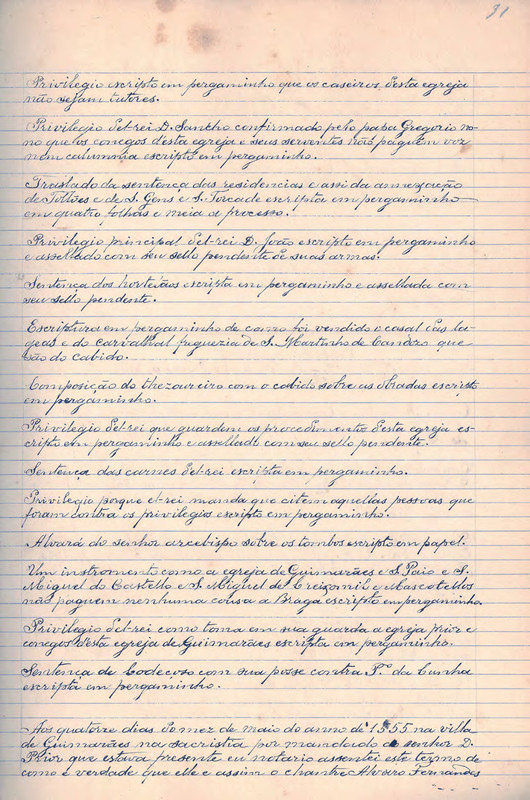 31
Privilegio escripto em pergaminho que os caseiros desta egreja
não sejam tutores.
Privilegio del-rei D. Sancho confirmado pelo papa Gregorio no-
no que os conegos d'esta egreja e seus serventes não paguem voz
nem calumnia escripto em pergaminho.
Traslado da sentença das residencias e assi da annexação
de Tollões e de S. Gens e S. Torcade escripta em pergaminho
em quatro folhas e meia a processo.
Privilegio principal del-rei D. João escripto em pergaminho
e assellado com seu sello pendente de suas armas.
Sentença dos hortelãos escripta em pergaminho e assellada com
seu sello pendente.
Escriptura em pergaminho de como foi vendido o casal das la-
geas e do carvalhal freguezia de S. Martinho de Candozo que
são do cabido.
Composição do thezoureiro com o cabido sobre as obradas escripto
em pergaminho.
Privilegio del-rei que guardem os procedimentos desta egreja es-
cripto em pergaminho e assellado com seu sello pendente.
Sentença das carnes del-rei escripta em pergaminho.
Privilegio porque el-rei manda que citem aquellas pessoas que
foram contra os privilegios escripto em pergaminho.
Alvará do senhor arcebispo sobre os tombos escripto em papel.
Um instromento como a egreja de Guimarães e S. Paio e S.
Miguel do Castello e S. Miguel de Creixomil e Mascotellos
não paguem nenhuma cousa a Braga escripto em pergaminho.
Privilegio del-rei como toma em sua guarda a egreja prior e
conegos desta egreja de Guimarães escripta em pergaminho.
Sentença de Codeçoso com sua posse contra P.º da Cunha
escripta em pergaminho.
Aos quatorze dias do mez de maio do anno de 1555 na villa
de Guimarães na sacristia por mandado do senhor D.
Prior que estava presente eu notario assentei este termo de
como é verdade que elle e assim o chantre Alvaro Fernandes